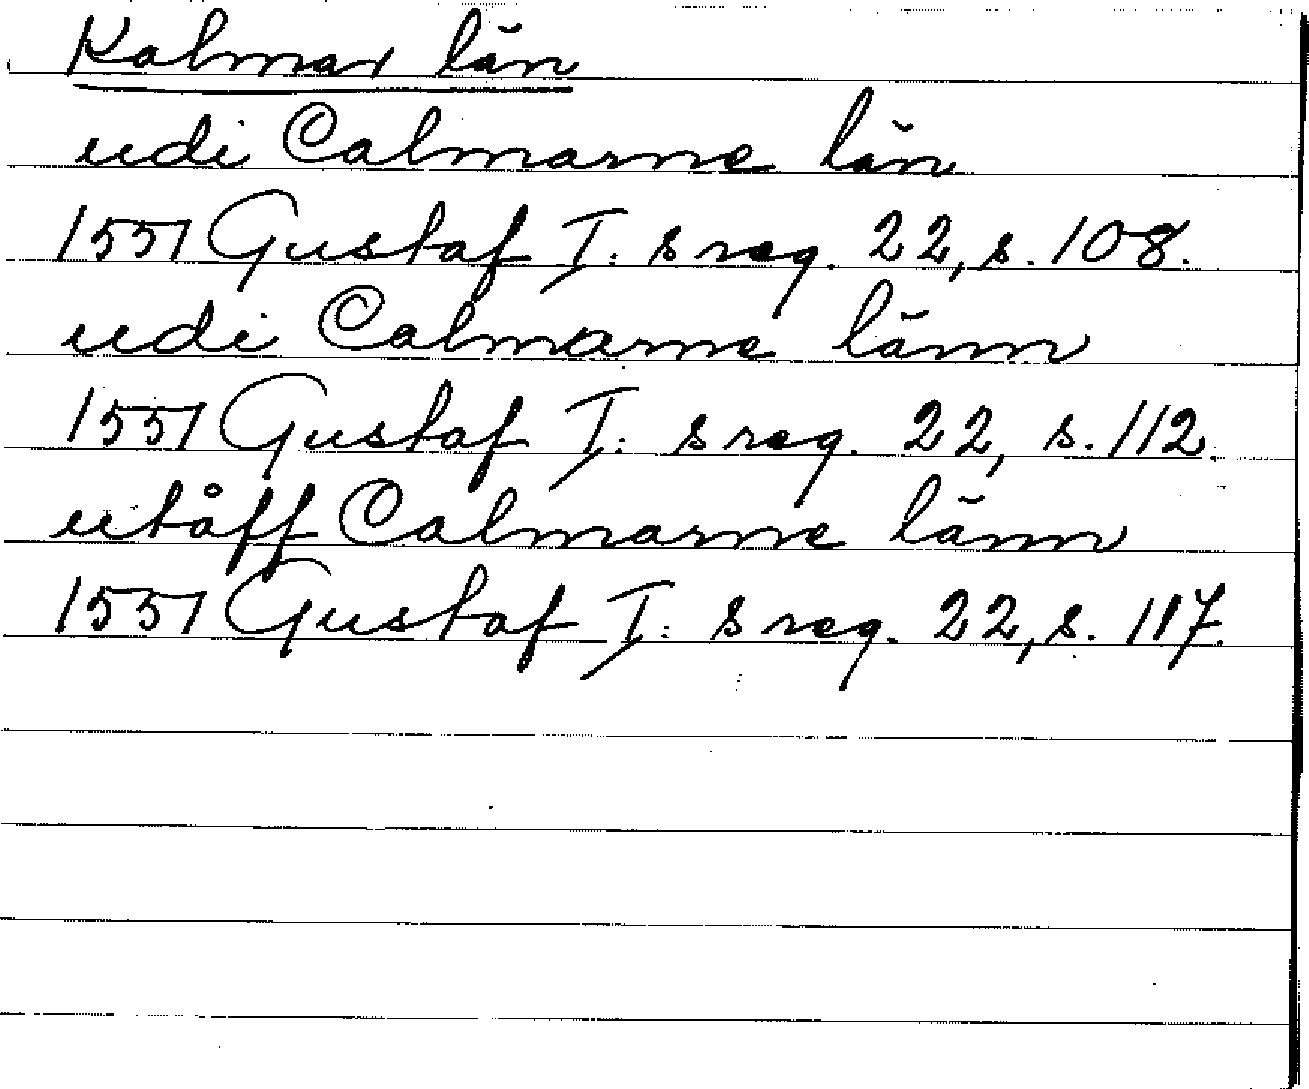 Kalmar län
udi Calmarne län
1551 Gustaf I:s reg. 22, s. 108.
udi Calmarne länn
1551 Gustaf I:s reg. 22, s. 112.
utåff Calmarne länn
1551 Gustaf I:s reg. 22, s. 117.